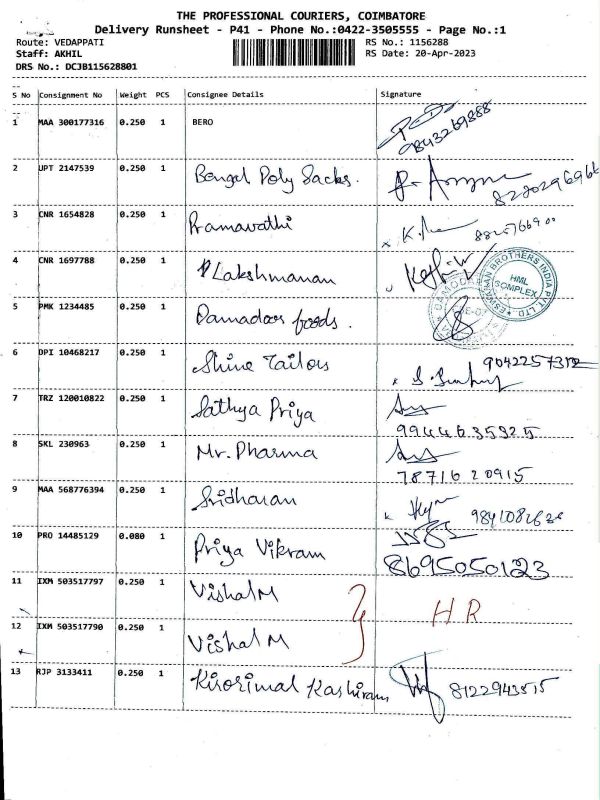 THE PROFESSIONAL COURIERS, COIMBATORE
Delivery Runsheet - P41 - Phone No.:0422-3505555 - Page No.:1
Route: VEDAPPATI RS No.: 1156288
Staff: AKHIL RS Date: 20-Apr-2023
DRS No.: DCJB115628801
S No Consignment No Weight PCS Consignee Details Signature
1 MAA 300177316 0.250 1 BERO 9843269888
2 UPT 2147539 0.250 1 Bengal Poly Sacks.
3 CNR 1654828 0.250 1 Pramavathi
4 CNR 1697788 0.250 1 Lakshmanan
ESWARAN BROTHERS INDIA PVT. LTD
HML COMPLEX
5 PMK 1234485 0.250 1 Damadoor foods.
6 DPI 10468217 0.250 1 Shine Tailors
7 TRZ 120010822 0.250 1 Sathya Priya
9944635325
8 SKL 230963 0.250 1 Mr. Pharma
7871620915
9 MAA 568776394 0.250 1 Sridharan
10 PRO 14485129 0.080 1 Priya Vikram
8695050123
11 IXM 503517797 0.250 1 Vishal M
HR
12 IXM 503517790 0.250 1 Vishal M
13 RJP 3133411 0.250 1 Kirorimal Kashiram